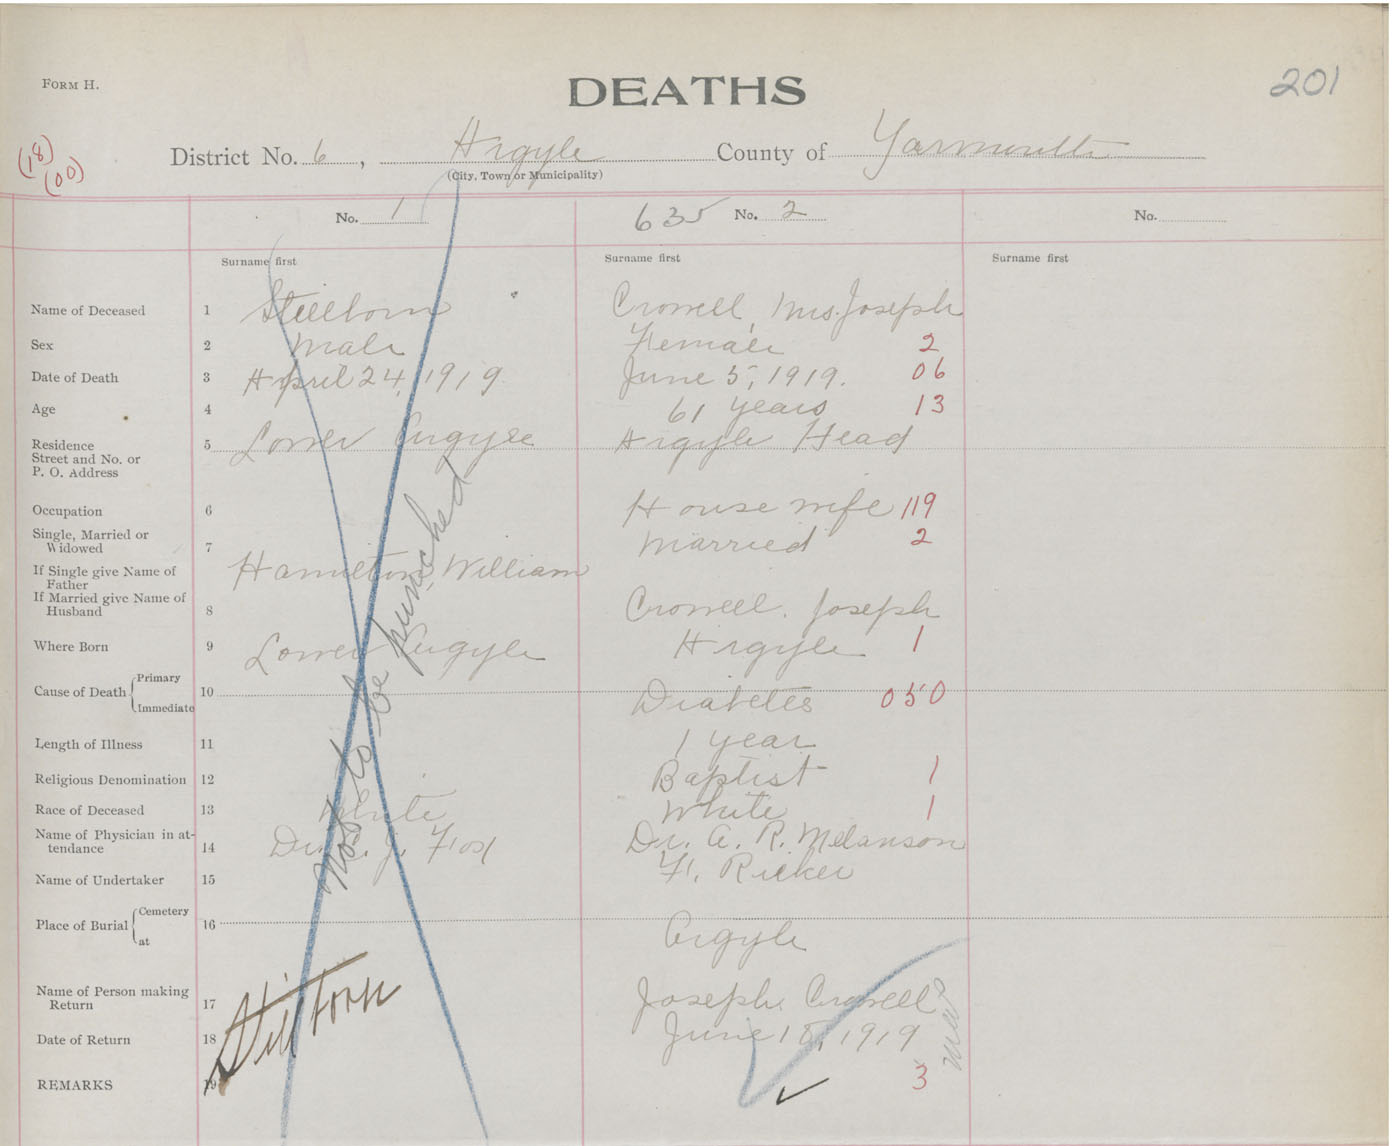 FORM H.
DEATHS
201
(18)
(00)
District No. 6, Argyle County of Yarmouth
(City, Town or Municipality)
No. 1
635 No. 2
No.
Surname first
Surname first
Surname first
Name of Deceased 1 Stillborn Crowell, Mrs. Joseph
Sex 2 Male Female 2
Date of Death 3 April 24, 1919 June 5, 1919. 06
Age 4 61 years 13
Residence 5 Lower Argyle Argyle Head
Street and No. or
P. O. Address
Occupation 6 House wife 119
Single, Married or
Widowed 7 Married 2
If Single give Name of
Father Hamilton William
If Married give Name of
Husband 8 Crowell. Joseph
Where Born 9 Lower Argyle Argyle 1
Cause of Death Primary
Immediate 10 Diabetes 050
Length of Illness 11 1 year
Religious Denomination 12 Baptist 1
Race of Deceased 13 White White 1
Name of Physician in at-
tendance 14 Dr. J. Fox Dr. A. R. Melanson
Name of Undertaker 15 F. Ricker
Place of Burial Cemetery
at 16 Argyle
Name of Person making
Return 17 Joseph Crowell
Date of Return 18 June 18, 1919
REMARKS 19 3
Not to be punched
Stillborn